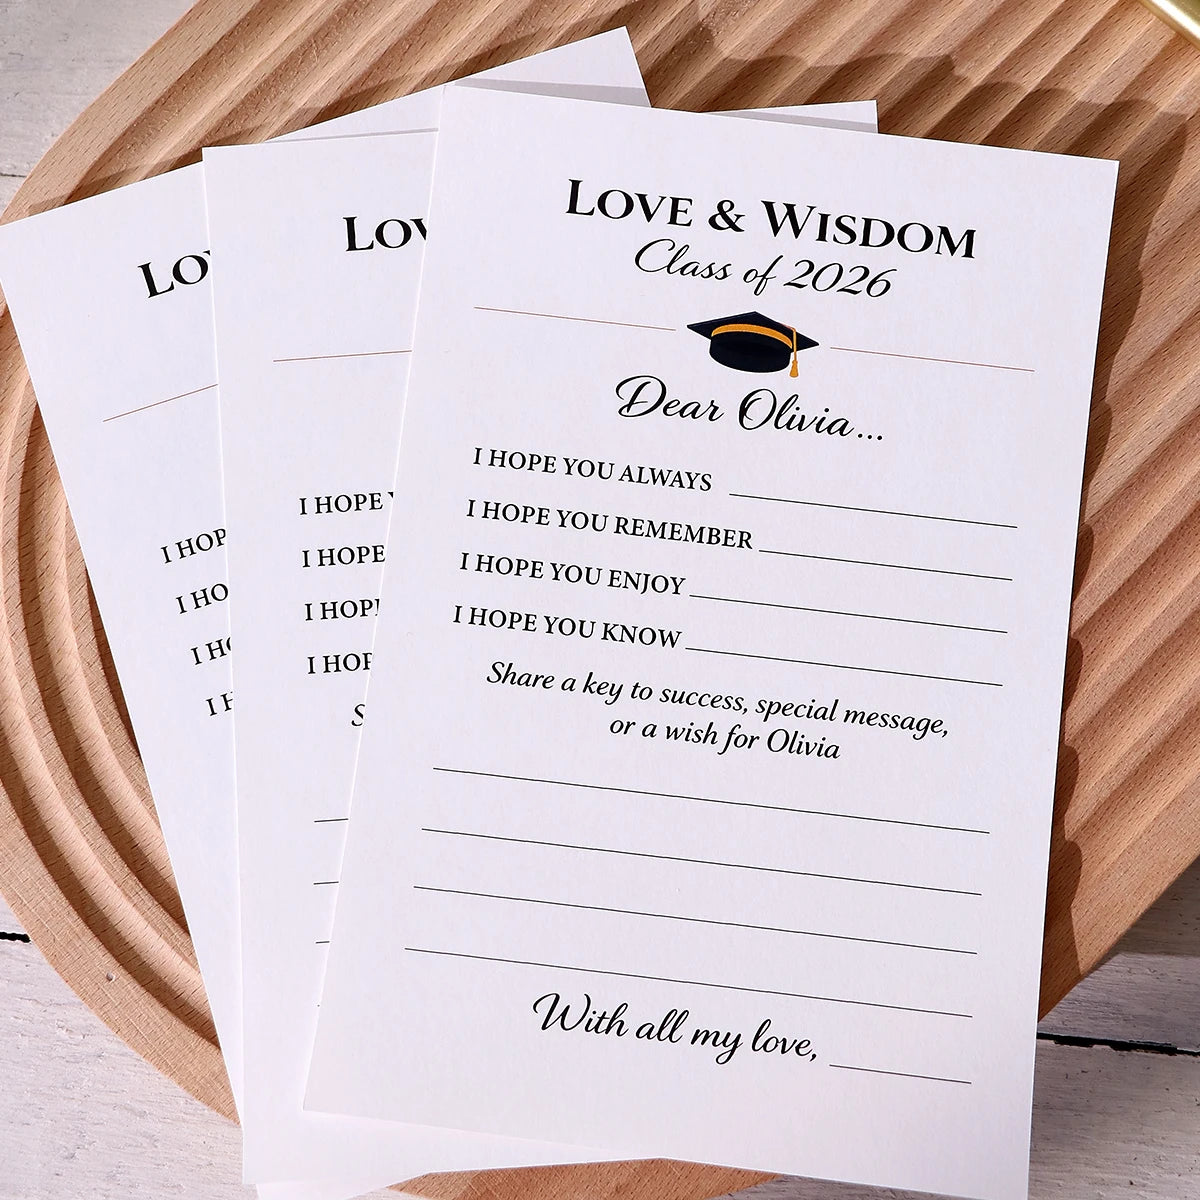 LOVE & WISDOM
Class of 2026
Dear Olivia...
I HOPE YOU ALWAYS
I HOPE YOU REMEMBER
I HOPE YOU ENJOY
I HOPE YOU KNOW
Share a key to success, special message,
or a wish for Olivia
With all my love,
LOV
I HOPE Y
I HOPE
I HOPE
I HOP
S
LO
I HOP
I HO
I H
I H